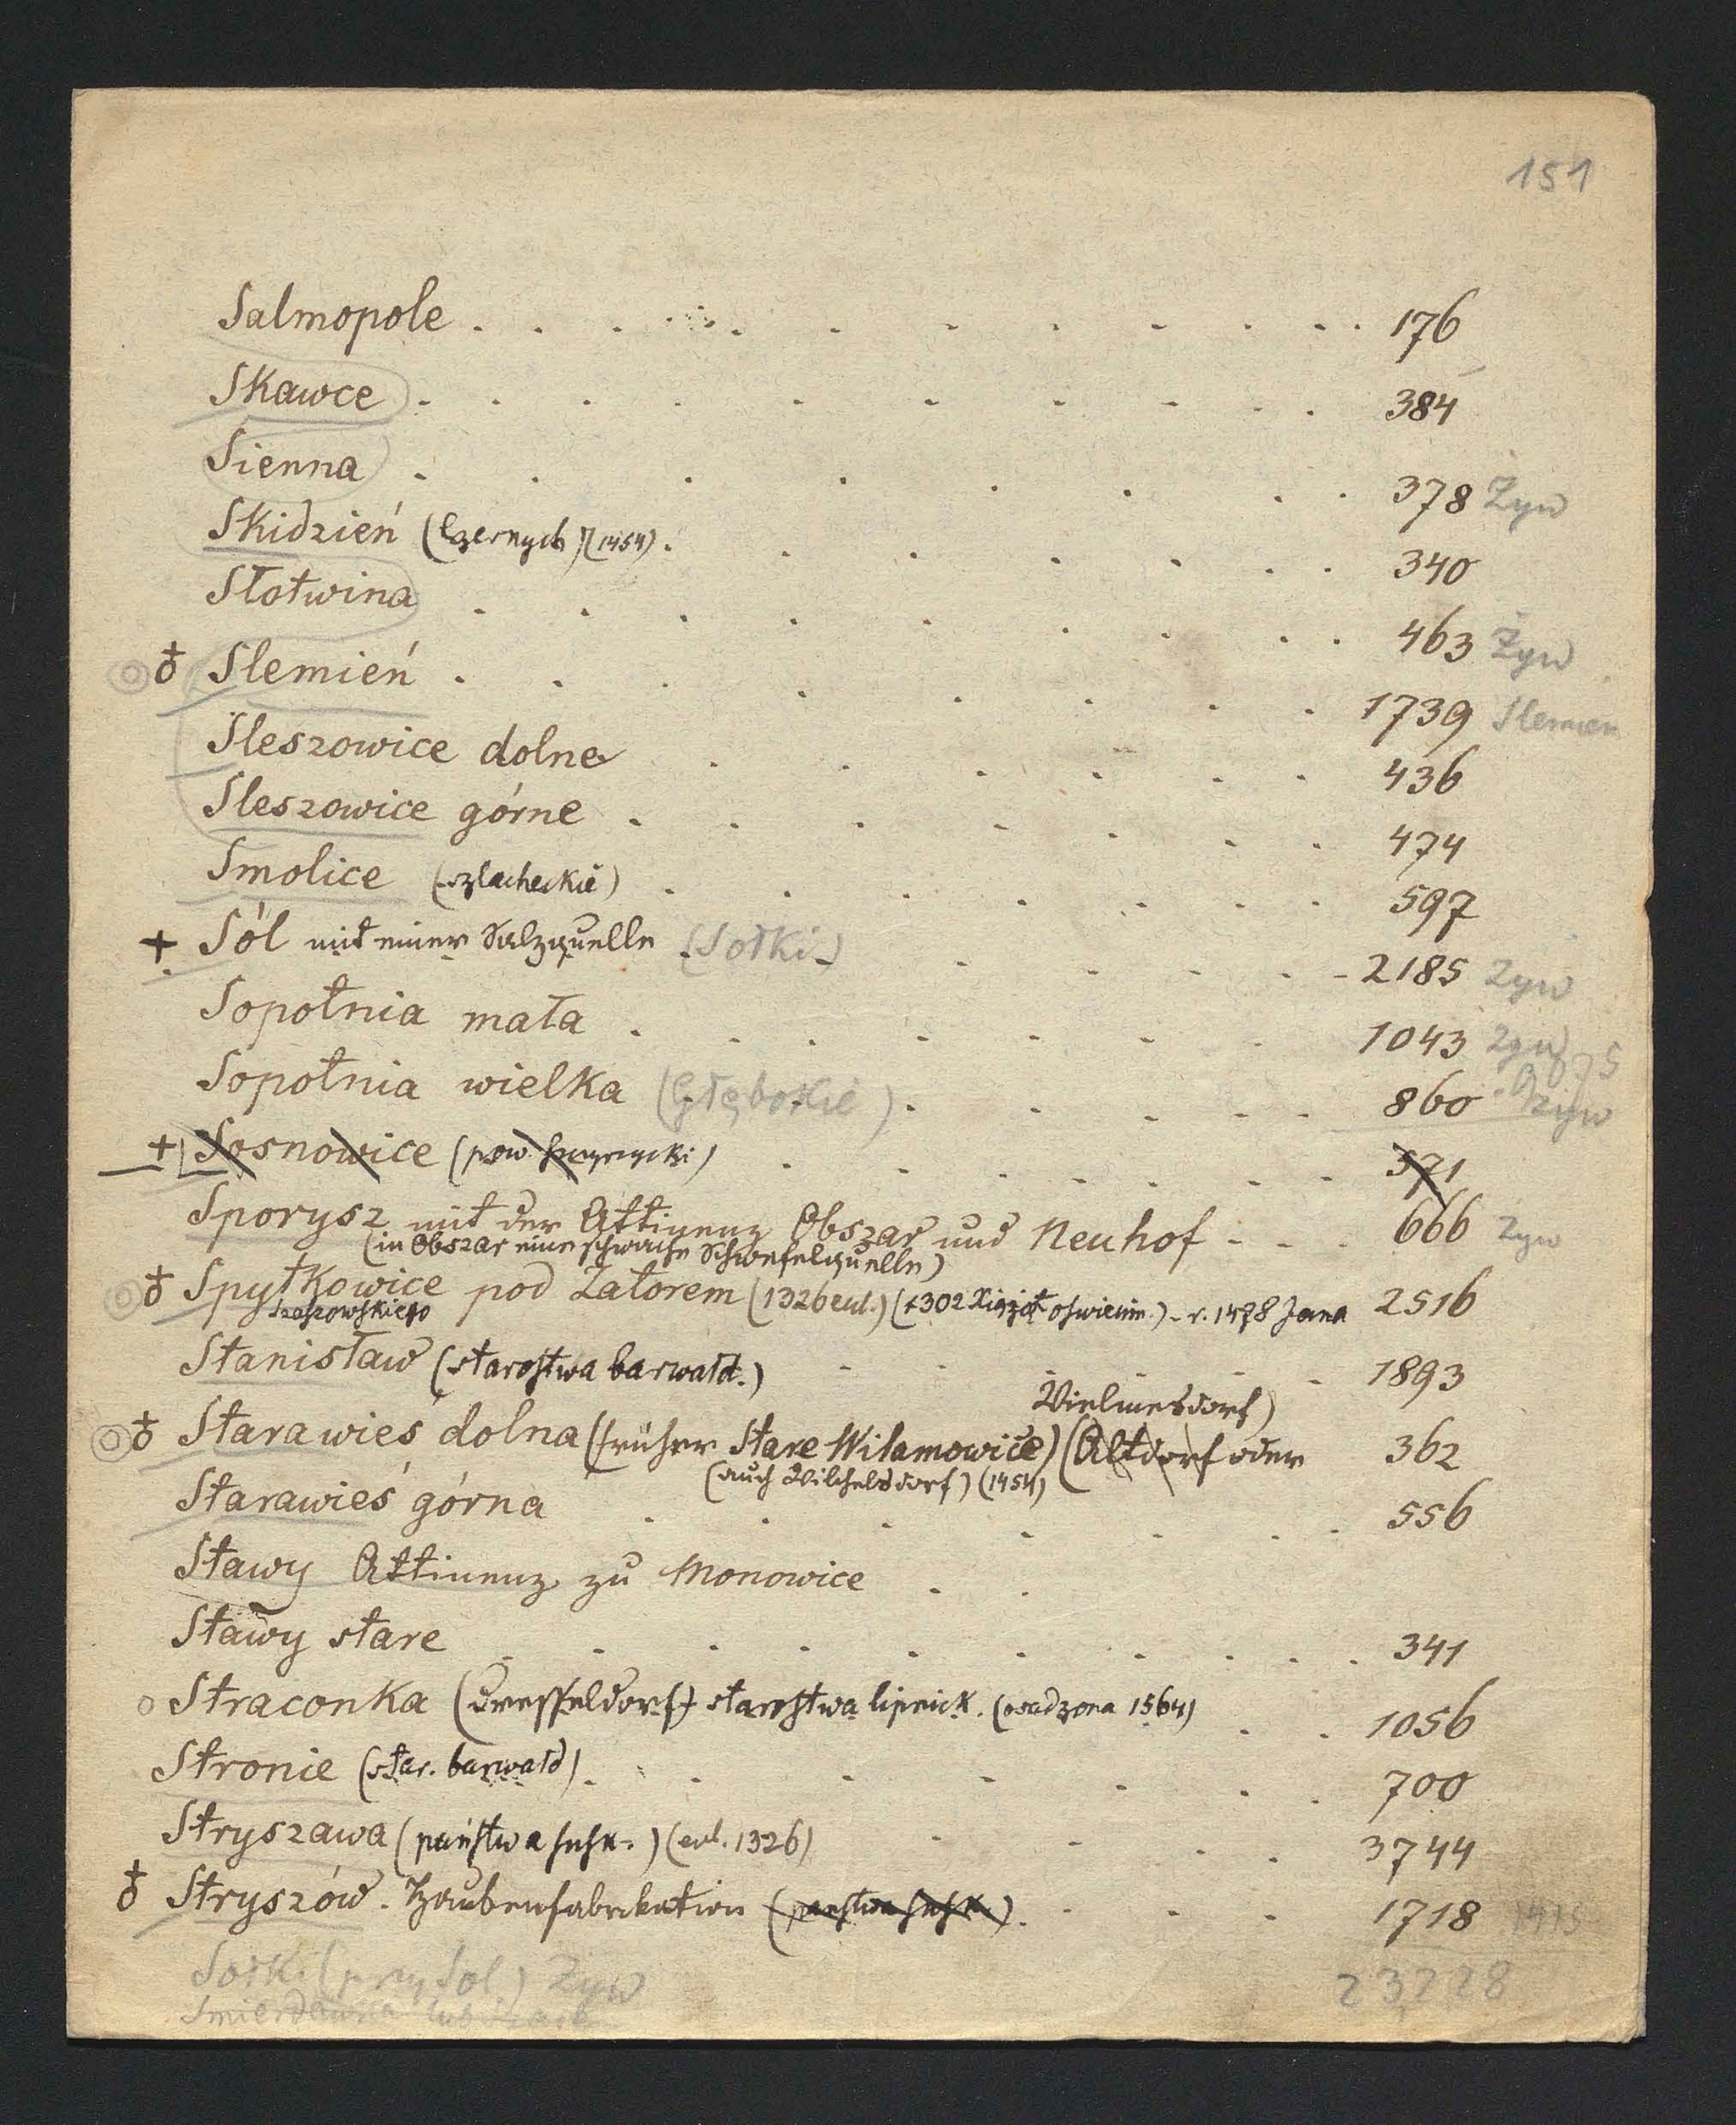 151
Salmopole . . . . . . . . . . 176
Skawce . . . . . . . . . . 384
Sienna . . . . . . . . 378 Żyw
Skidzień (Czernych) (1454) . . . . . . . 340
Słotwina . . . . . . . . . 463 Żyw
♁ Slemień . . . . . . . . 1739 Slemień
Sleszowice dolne . . . . . . 436
Sleszowice górne . . . . . . . 474
Smolice (szlacheckie) . . . . . . . 597
+ Sól mit einer Salzquelle (Sołki) . . . . . 2185 Żyw
Sopotnia mała . . . . . . . 1043 Żyw
Sopotnia wielka (Głębokie) . . . . . 860 Żyw
+ Sosnowice (pow. ) . . . . . . . 571
Sporysz mit der Attinenz Obszar und Neuhof - - . 666 Żyw
(in Obszar eine schwache Schwefelquelle)
♁ Spytkowice pod Zatorem (1326 eul.) (1302 Xiążąt oświęcim.) - r. 1478 Jana 2516
Szaszowskiego
Stanisław (starostwa barwałd.) . . . 1893
Wielmesdorf)
♁ Starawieś dolna (früher Stare Wilamowice) (Altdorf oder 362
(auch Wilchelsdorf) (1454)
Starawieś górna . . . . . . . 556
Stawy Attinenz zu Monowice . .
Stawy stare . . . . . . . . . 341
o Straconka (Dresseldorf) starostwa lipnick. (osadzona 1564) . . 1056
Stronie (star. barwałd) . . . . . . . 700
Stryszawa (państwa suskk.) (eul. 1326) . . . . 3744
♁ Stryszów. Haubenfabrikation (państwa susk.) . . . . 1718 1415
Sołki (przy Sol) Żyw 23,228
lub